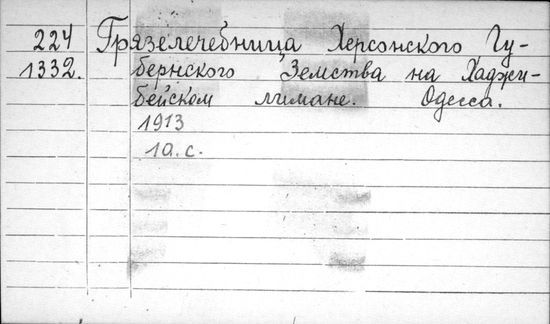 224 Грязелечебница Херсонского Гу-
1332. бернского Земства на Хаджи-
бейском лимане. Одесса.
1913
1а. с.